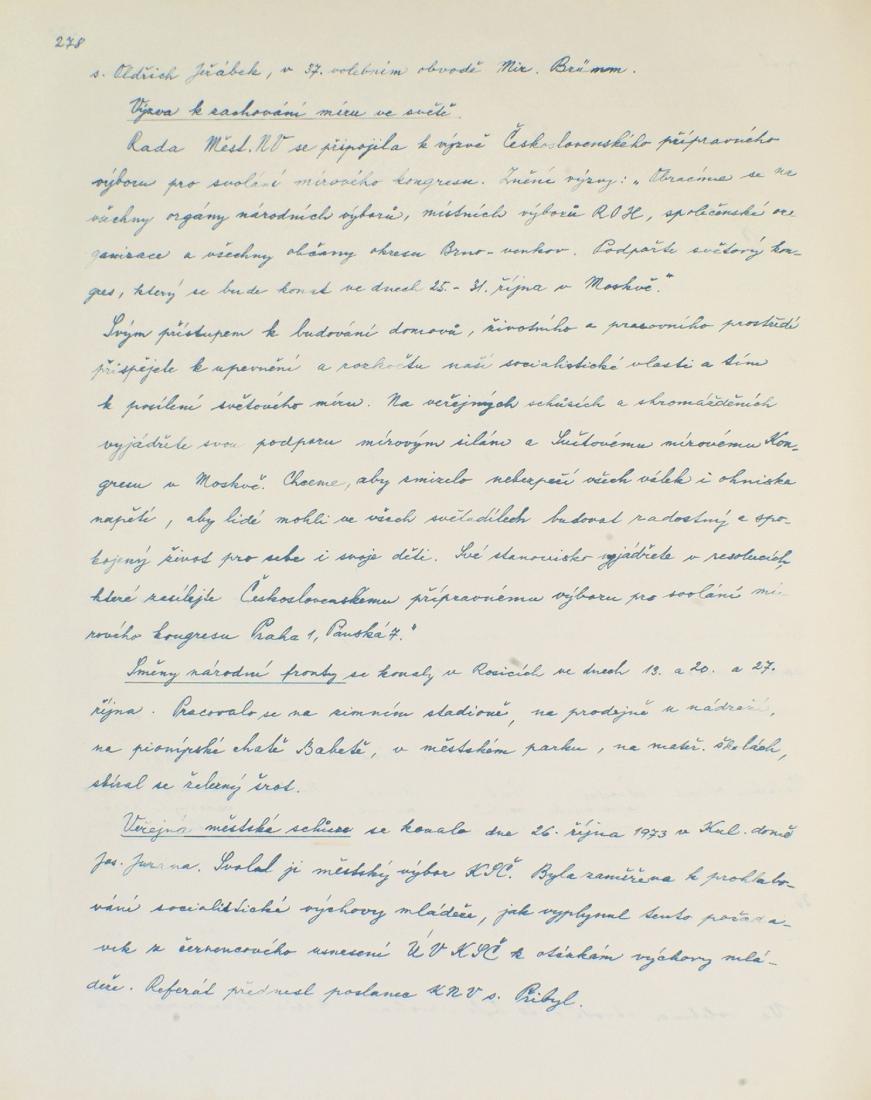 278
s. Oldřich Jeřábek, v 37. volebním obvodě Mir. Brümm.
Výzva k zachování míru ve světě.
Rada Měst. NV se připojila k výzvě Československého přípravného
výboru pro svolání mírového kongresu. Znění výzvy: „Obracíme se na
všechny orgány národních výborů, místních výborů ROH, společenské or
ganizace a všechny občany okresu Brno-venkov. Podpořte světový kon-
gres, který se bude konat ve dnech 25.-31. října v Moskvě."
Svým přístupem k budování domovů, životního a pracovního prostředí
přispějete k upevnění a rozkvětu naší socialistické vlasti a tím
k posílení světového míru. Na veřejných schůzích a shromážděních
vyjádřete svou podporu mírovým silám a Světovému mírovému Kon-
gresu v Moskvě. Chceme, aby zmizelo nebezpečí všech válek i ohniska
napětí, aby lidé mohli ve všech světadílech budovat radostný a spo-
kojený život pro sebe i svoje děti. Své stanovisko vyjádřete v resolucích,
které zasílejte Československému přípravnému výboru pro svolání mí-
rového kongresu Praha 1, Panská 7."
Směny národní fronty se konaly v Rosicích ve dnech 13. a 20. a 27.
října. Pracovalo se na zimním stadioně, na prodejně u nádraží,
na pionýrské chatě Babetě, v městském parku, na mateř. školách,
sbíral se železný šrot.
Veřejná městská schůze se konala dne 26. října 1973 v Kul. domě
Jos. Svolal ji městský výbor KSČ. Byla zaměřena k prohlubo-
vání socialistické výchovy mládeže, jak vyplynul tento požada-
vek z červencového usnesení ÚV KSČ k otázkám výchovy mlá-
deže. Referát přednesl poslanec KNV s. Přibyl.